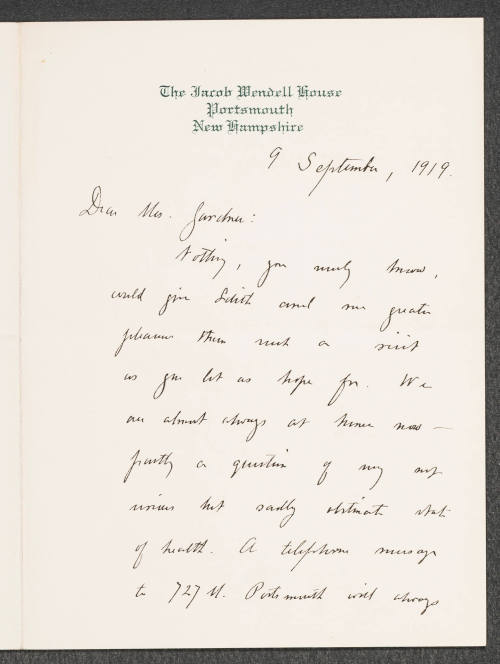 The Jacob Wendell House
Portsmouth
New Hampshire
9 September, 1919.
Dear Mrs. Gardner:
Nothing, you surely know,
could give Edith and me greater
pleasure than such a visit
as you let us hope for. We
are almost always at home now —
partly a question of my not
serious but sadly obstinate state
of health. A telephone message
to 727 M. Portsmouth will always